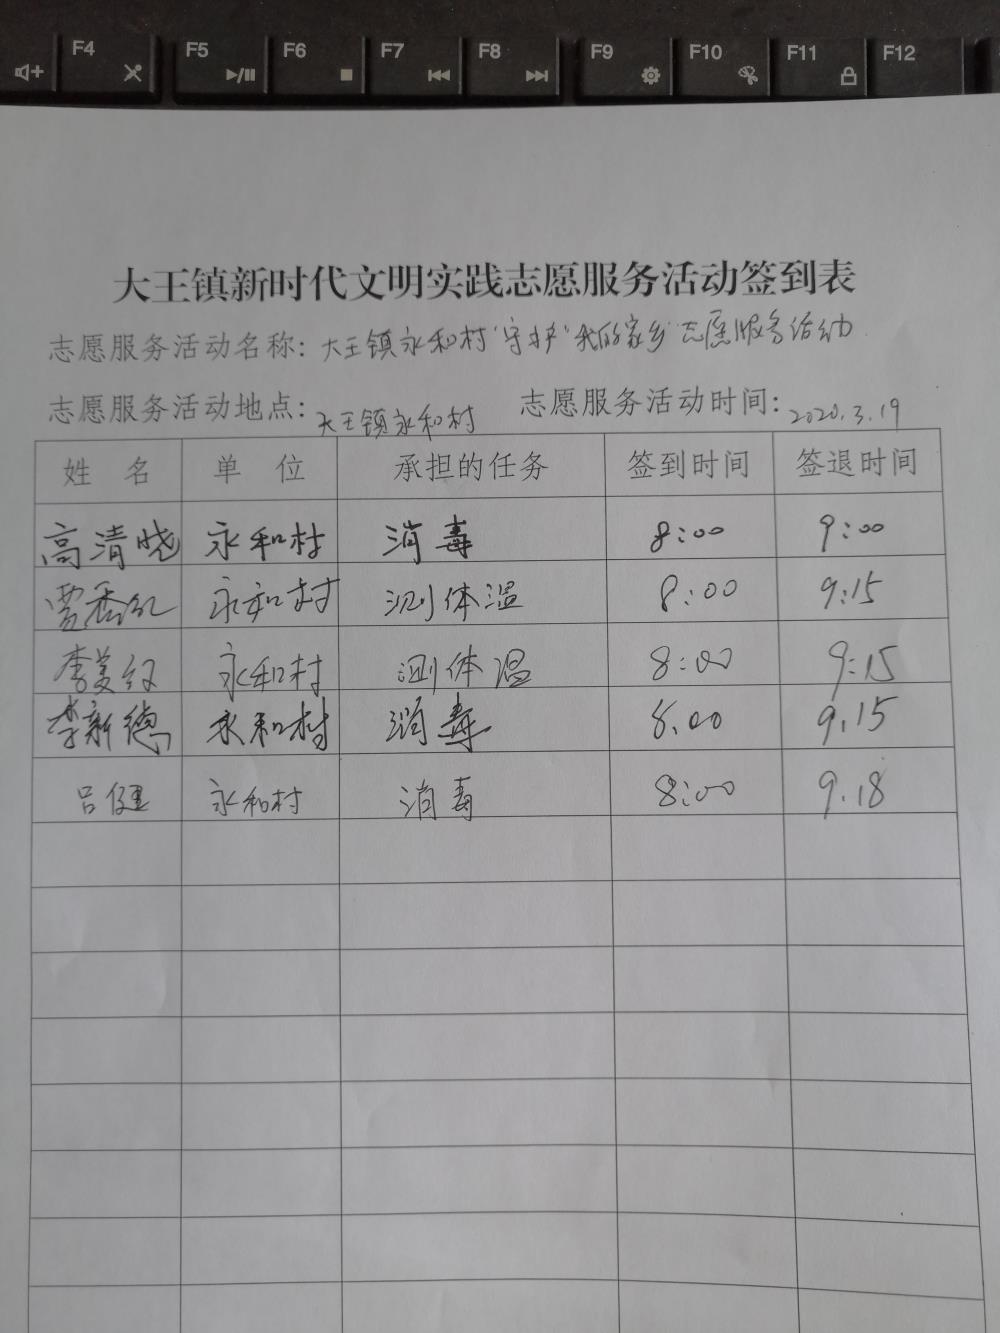 F4 F5 F6 F7 F8 F9 F10 F11 F12
大王镇新时代文明实践志愿服务活动签到表
志愿服务活动名称: 大王镇永和村"守护"我的家乡 志愿服务活动
志愿服务活动地点: 大王镇永和村 志愿服务活动时间: 2020.3.19
姓 名 单 位 承担的任务 签到时间 签退时间
高清晓 永和村 消毒 8:00 9:00
贾香红 永和村 测体温 8:00 9:15
李美红 永和村 测体温 8:00 9:15
李新德 永和村 消毒 8.00 9.15
吕健 永和村 消毒 8:00 9.18